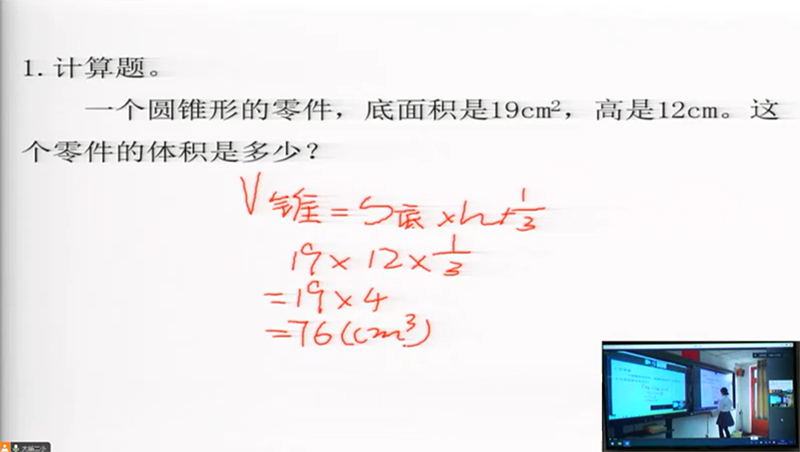 1.计算题。
一个圆锥形的零件，底面积是19cm²，高是12cm。这
个零件的体积是多少？
V锥=S底×h×1/3
19×12×1/3
=19×4
=76(cm³)